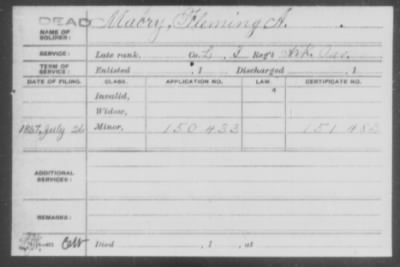 DEAD
NAME OF SOLDIER: Mabry, Fleming A.
SERVICE: Late rank, Co. L, I Reg't Ark. Cav.
TERM OF SERVICE: Enlisted , 1 Discharged , 1
DATE OF FILING. CLASS. APPLICATION NO. LAW. CERTIFICATE NO.
Invalid,
Widow,
1867, July 26 Minor, 150 433 151 480
ADDITIONAL SERVICES:
REMARKS:
Died , 1 , at